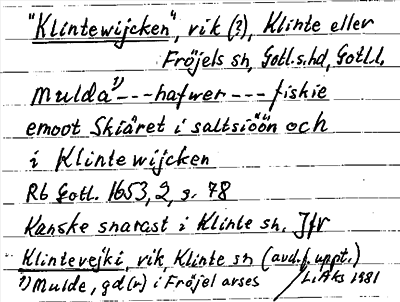 "Klintewijcken", vik (?), Klinte eller
Fröjels sn, Gotl.s.hd, Gotl.l.
Mulda¹⁾---hafwer---fiskie
emoot Skiäret i saltsiöön och
i Klintewijcken
Rb Gotl. 1653, 2, s. 78
Kanske snarast i Klinte sn. Jfr
Klintevejki, vik, Klinte sn (avd.f. uppt.)
¹⁾ Mulde, gd(r) i Fröjel avses / L.Aks 1981